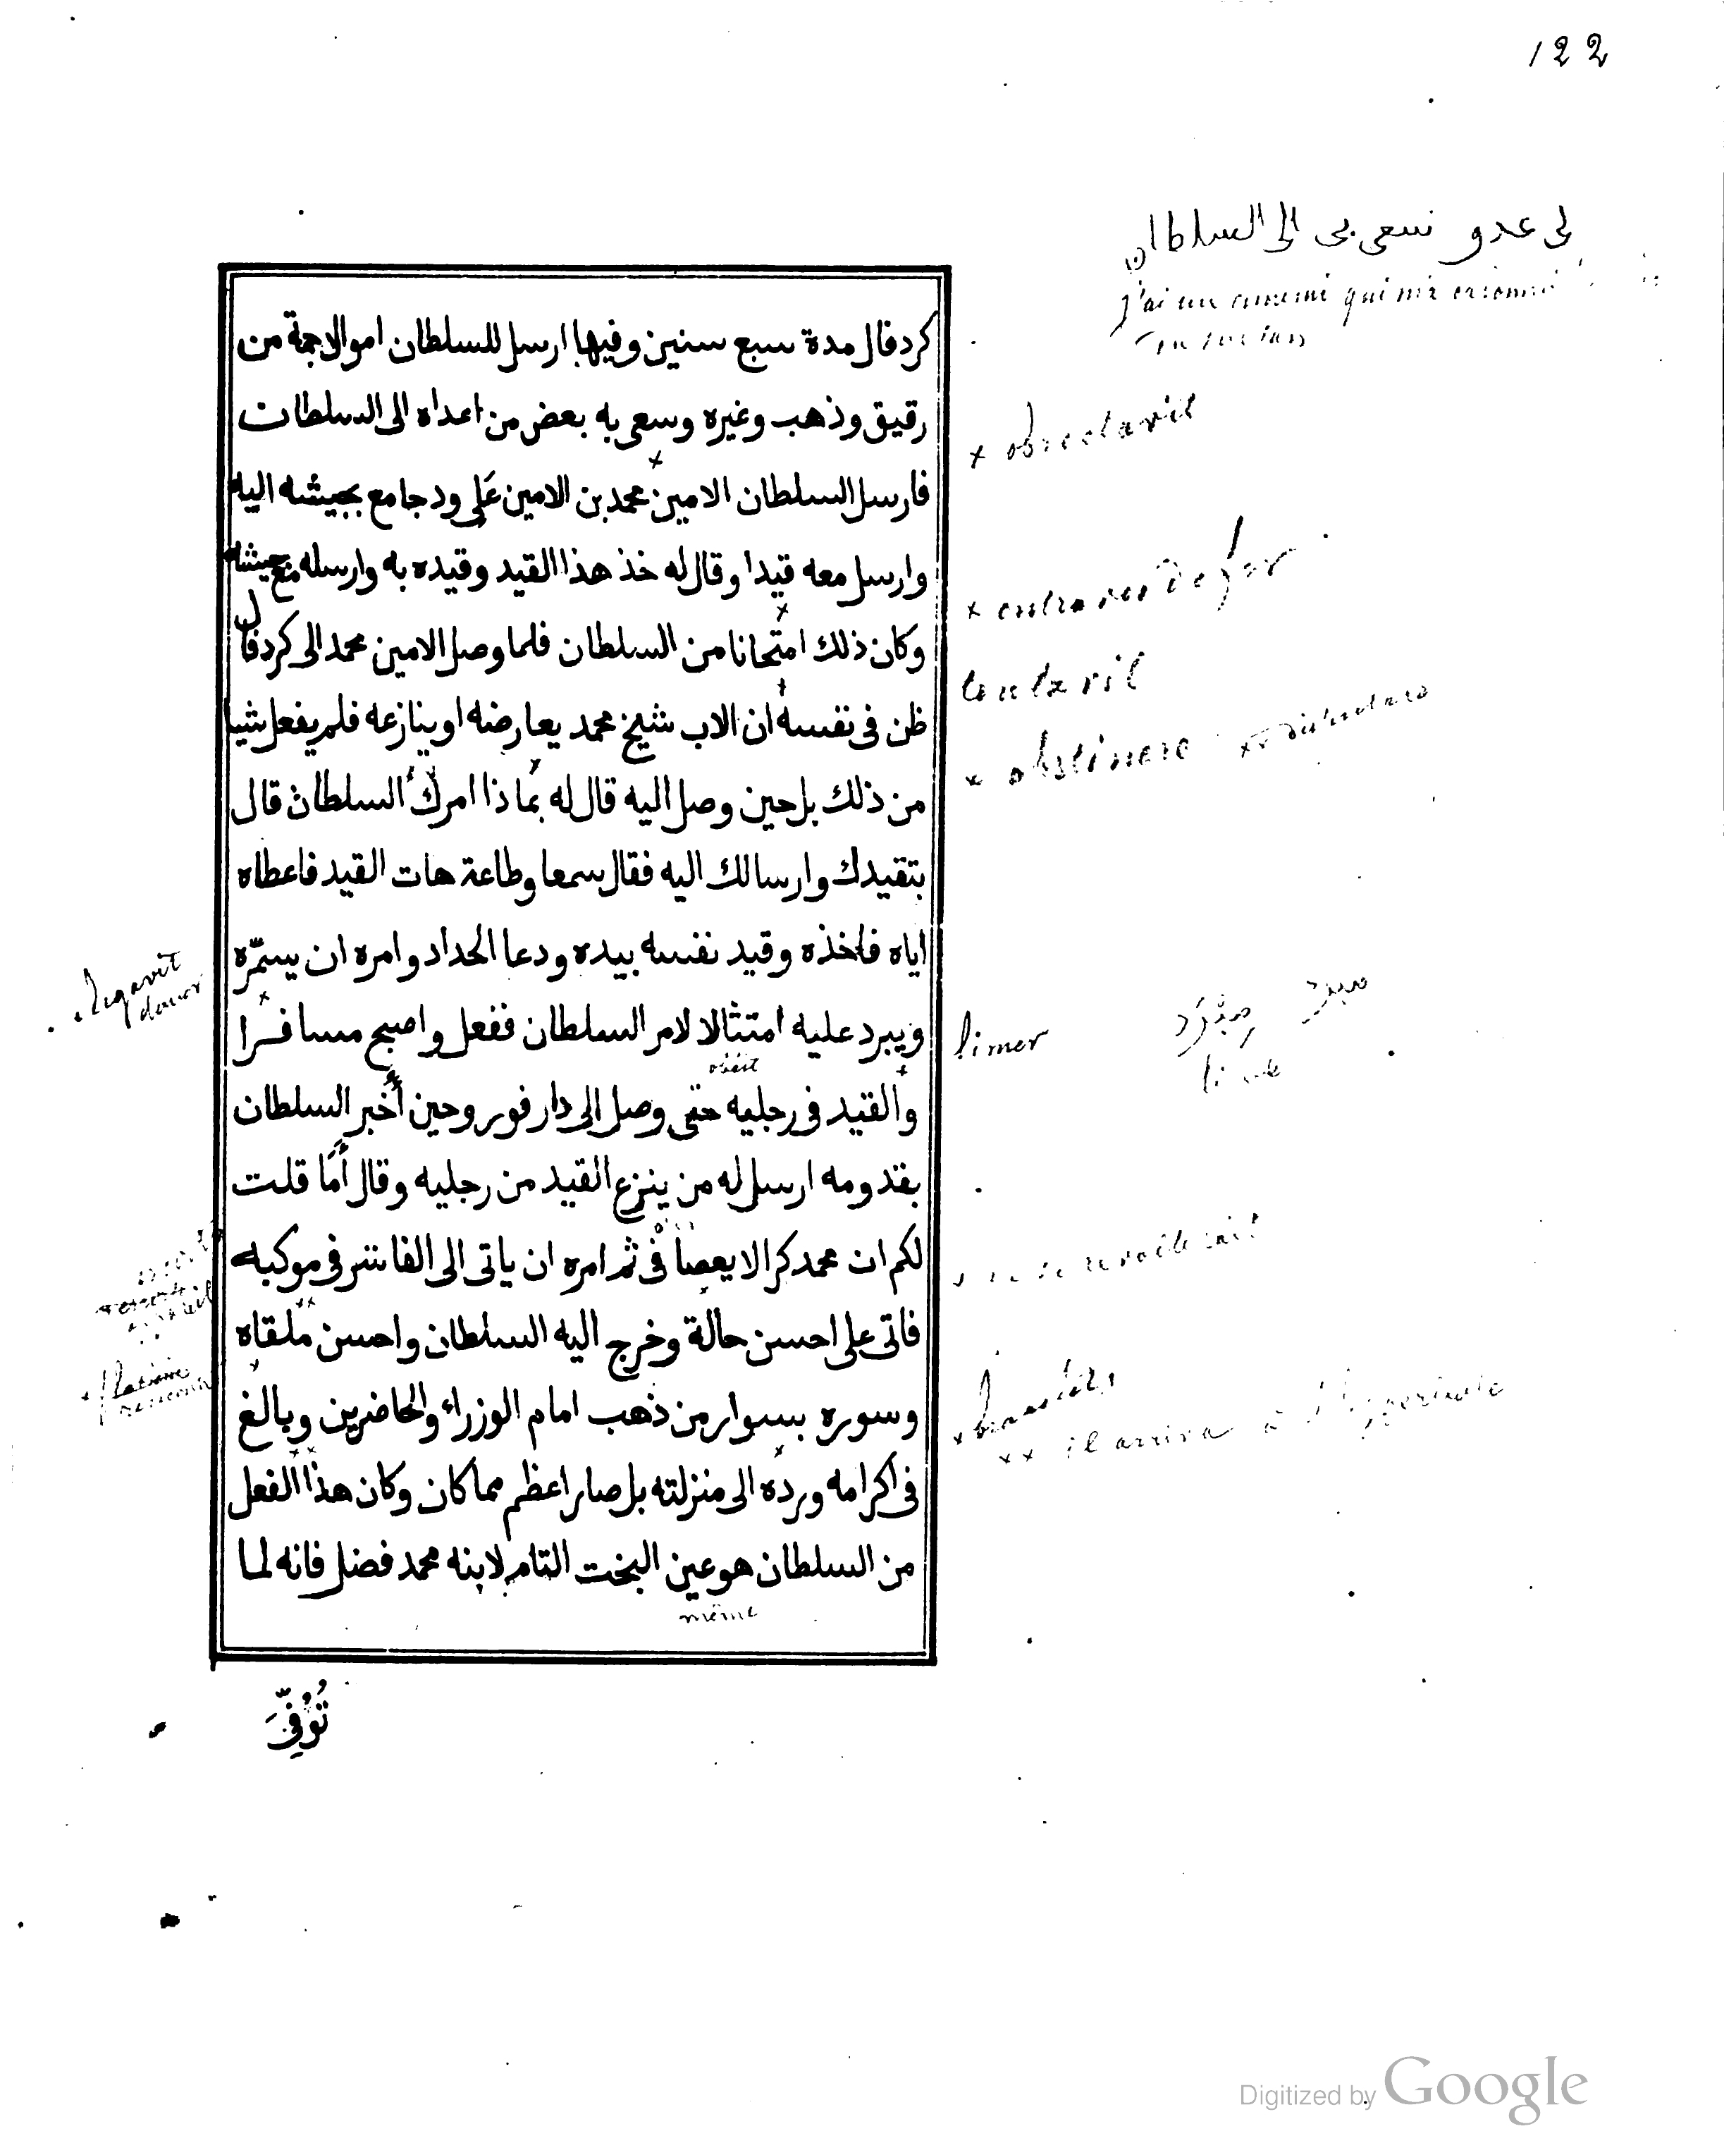 122
لى عدو نسعى بى الى السلطان
j'ai un ennemi qui m'a
كردفال مدة سبع سنين وفيها ارسل للسلطان اموالا جمة من
رقيق وذهب وغيره وسعى به بعض من اعداه الى السلطان
فارسل السلطان الامين محمد بن الامين على ود جامع بجيشه اليه
وارسل معه قيدا وقال له خذ هذا القيد وقيده به وارسله مع جيشه
وكان ذلك امتحانا من السلطان فلما وصل الامين محمد الى كردفال
ظن فى نفسه ان الاب شيخ محمد يعارضه او ينازعه فلم يفعل شيا
من ذلك بل حين وصل اليه قال له بماذا امرك السلطان قال
بتقيدك وارسالك اليه فقال سمعا وطاعة هات القيد فاعطاه
اياه فاخذه وقيد نفسه بيده ودعا الحداد وامره ان يسمّره
ويبرد عليه امتثالا لامر السلطان ففعل واصبح مسافرا
obéit
والقيد فى رجليه حتى وصل الى دارفور وحين أُخبر السلطان
بقدومه ارسل له من ينزع القيد من رجليه وقال أَمَا قلت
لكم ان محمد كرا لا يعصانى ثم امره ان ياتى الى الفاشر فى موكبه
فاتى على احسن حالة وخرج اليه السلطان واحسن ملقاه
وسوره بسوار من ذهب امام الوزراء والحاضرين وبالغ
فى اكرامه ورده الى منزلته بل صار اعظم مما كان وكان هذا الفعل
من السلطان هو عين البخت التام لابنه محمد فضل فانه لما
même
تُوُفِّىَ
x entraves de fer
tentavit
x obstinere
limer
مبرد
x x il arriva à
Digitized by Google